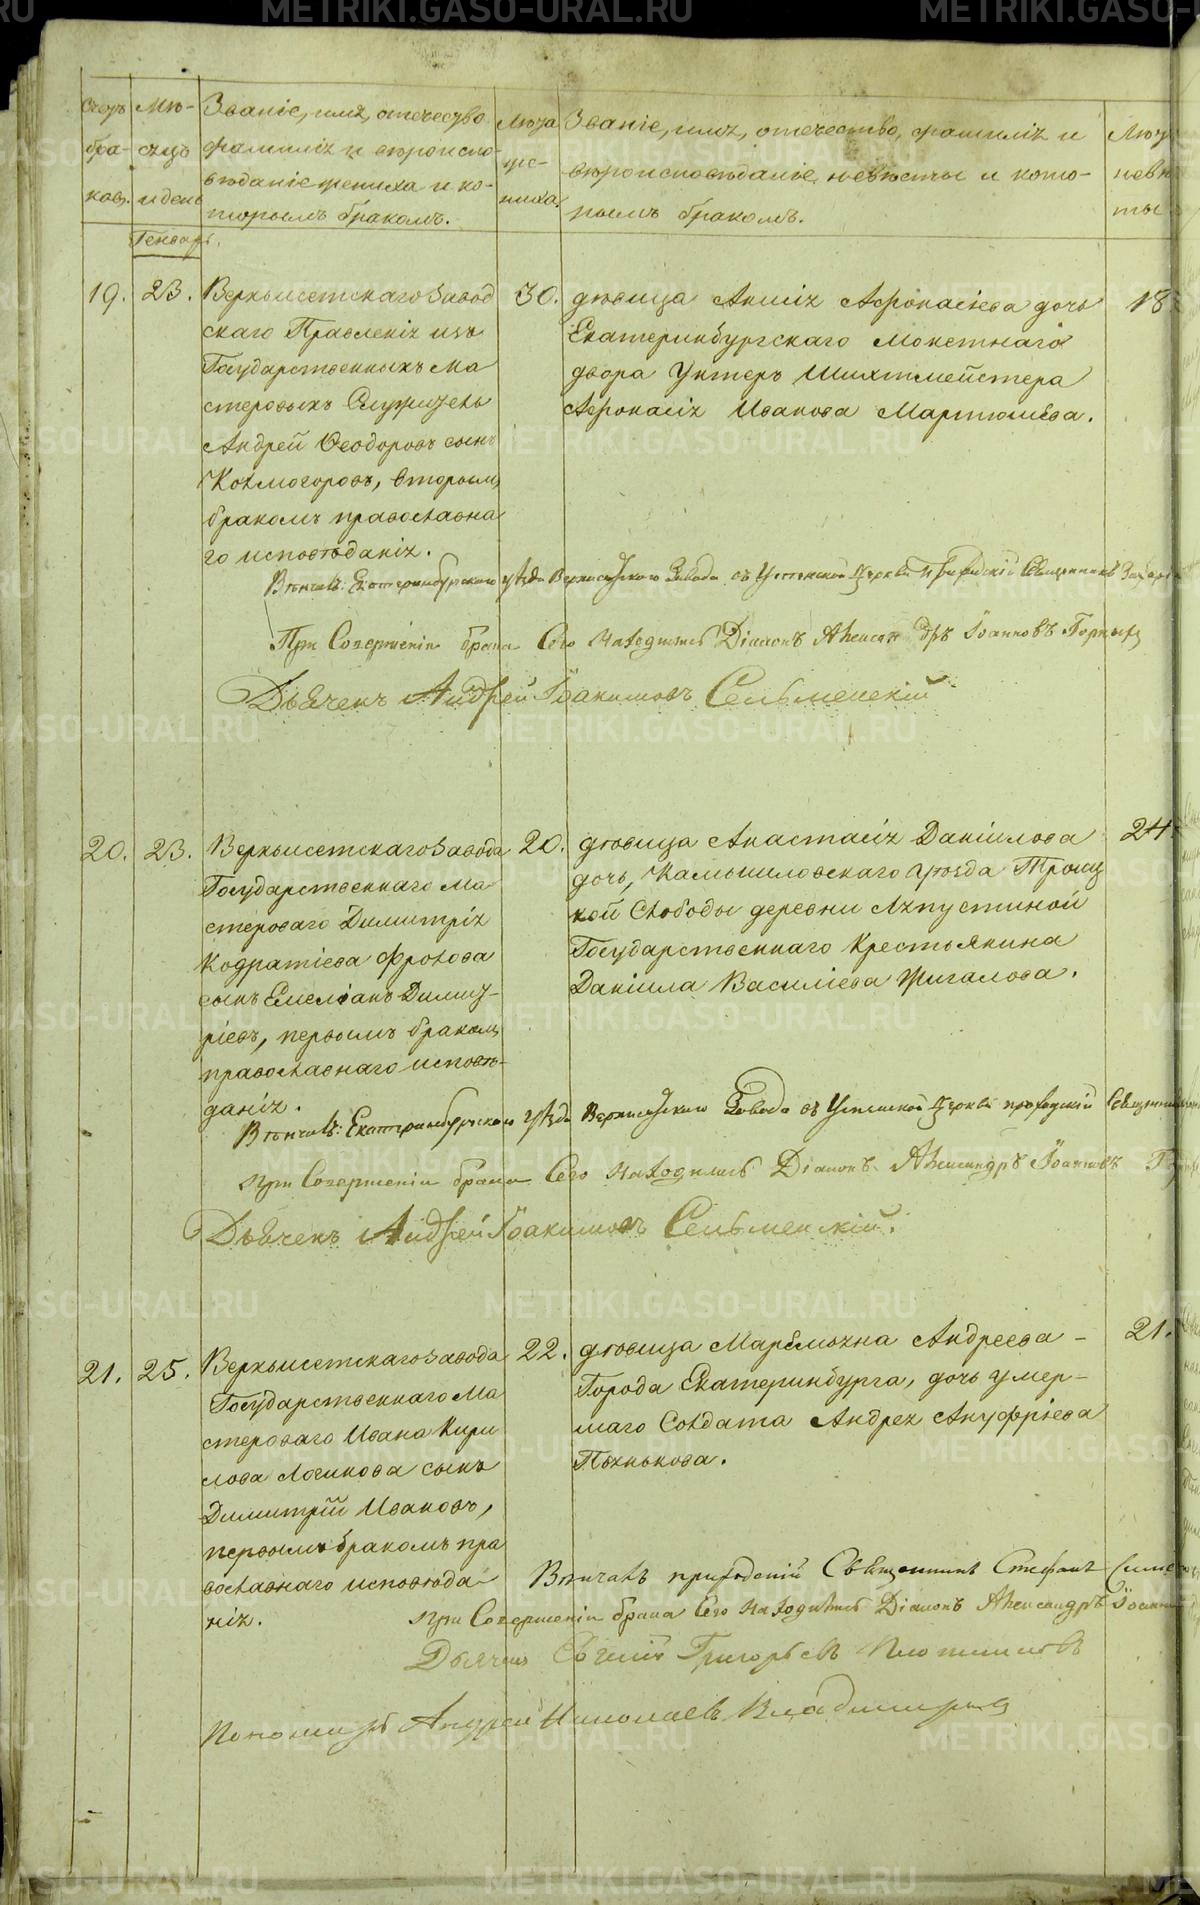 METRIKI.GASO-URAL.RU
Счетъ браковъ.
Мѣсяцъ и день
Званіе, имя, отечество фамилія и вѣроисповѣданіе жениха и которымъ бракомъ.
Лѣта жениха.
Званіе, имя, отечество, фамилія и вѣроисповѣданіе невѣсты и которымъ бракомъ.
Генварь.
19. 23.
Верхъисетскаго Завод
скаго Правленія изъ
Государственныхъ ма
стеровыхъ Служитель
Андрей Ѳеодоровъ сынъ
Колмогоровъ, вторымъ
бракомъ православна
го исповѣданія.
30.
дѣвица Анисія Афонасіева дочь
Екатеринбургскаго Монетнаго
двора Унтеръ Шихтмейстера
Афонасія Иванова Мартюшева.
18
Вѣнчалъ: Екатеринбургскаго уѣзда Верхисетскаго Завода въ Успенской Церкви Приходскій Священникъ
При Совершеніи брака Сего находились Діаконъ Александръ Іоанновъ
Дьячекъ Андрей Іоакимовъ Сельменскій
20. 23.
Верхъисетскаго Завода
Государственнаго Ма
стероваго Димитрія
Кодратіева Фролова
сынъ Емеліанъ Димит-
ріевъ, первымъ бракомъ
православнаго исповѣ-
данія.
20.
дѣвица Анастасія Даніилова
дочь, Камышловскаго уѣзда Троиц
кой Слободы деревни Ляпустиной
Государственнаго Крестьянина
Даніила Василіева Жигалова.
24
Вѣнчалъ: Екатеринбургскаго уѣзда Верхисетскаго Завода въ Успенской Церкви приходскій
при Совершеніи брака Сего находились Діаконъ Александръ Іоанновъ
Дьячекъ Андрей Іоакимовъ Сельменскій.
21. 25.
Верхъисетскаго Завода
Государственнаго Ма
стероваго Ивана Кири
лова Логинова сынъ
Димитрій Ивановъ,
первымъ бракомъ пра
вославнаго исповѣда
нія.
22.
дѣвица Маремьяна Андреева -
Города Екатеринбурга, дочь умер-
шаго Солдата Андрея Ануфріева
Пѣнькова.
21.
Вѣнчалъ приходскій Священникъ Стефанъ
при Совершеніи брака Сего находились Діаконъ Александръ
Дьячекъ Евгеній Григорьевъ Плотниковъ
Пономарь Андрей Николаевъ